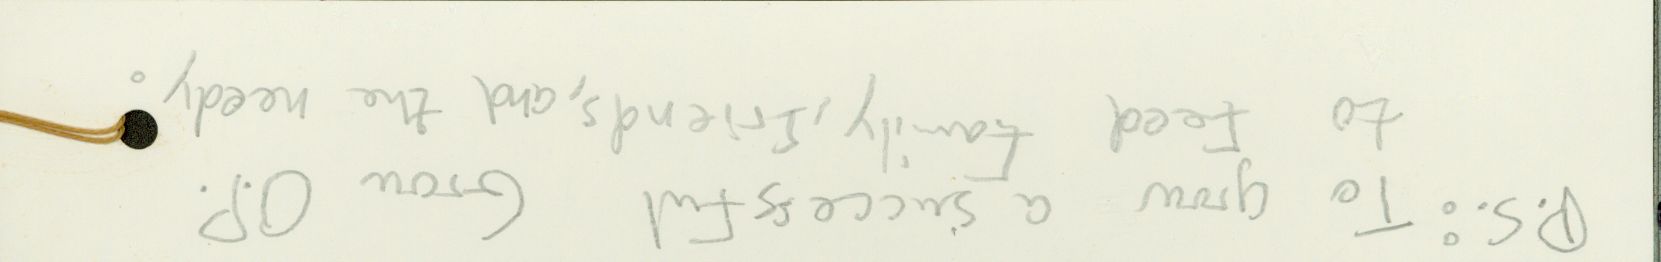 P.S.: To grow a successful Grow OP.
to feed family, friends, and the needy.